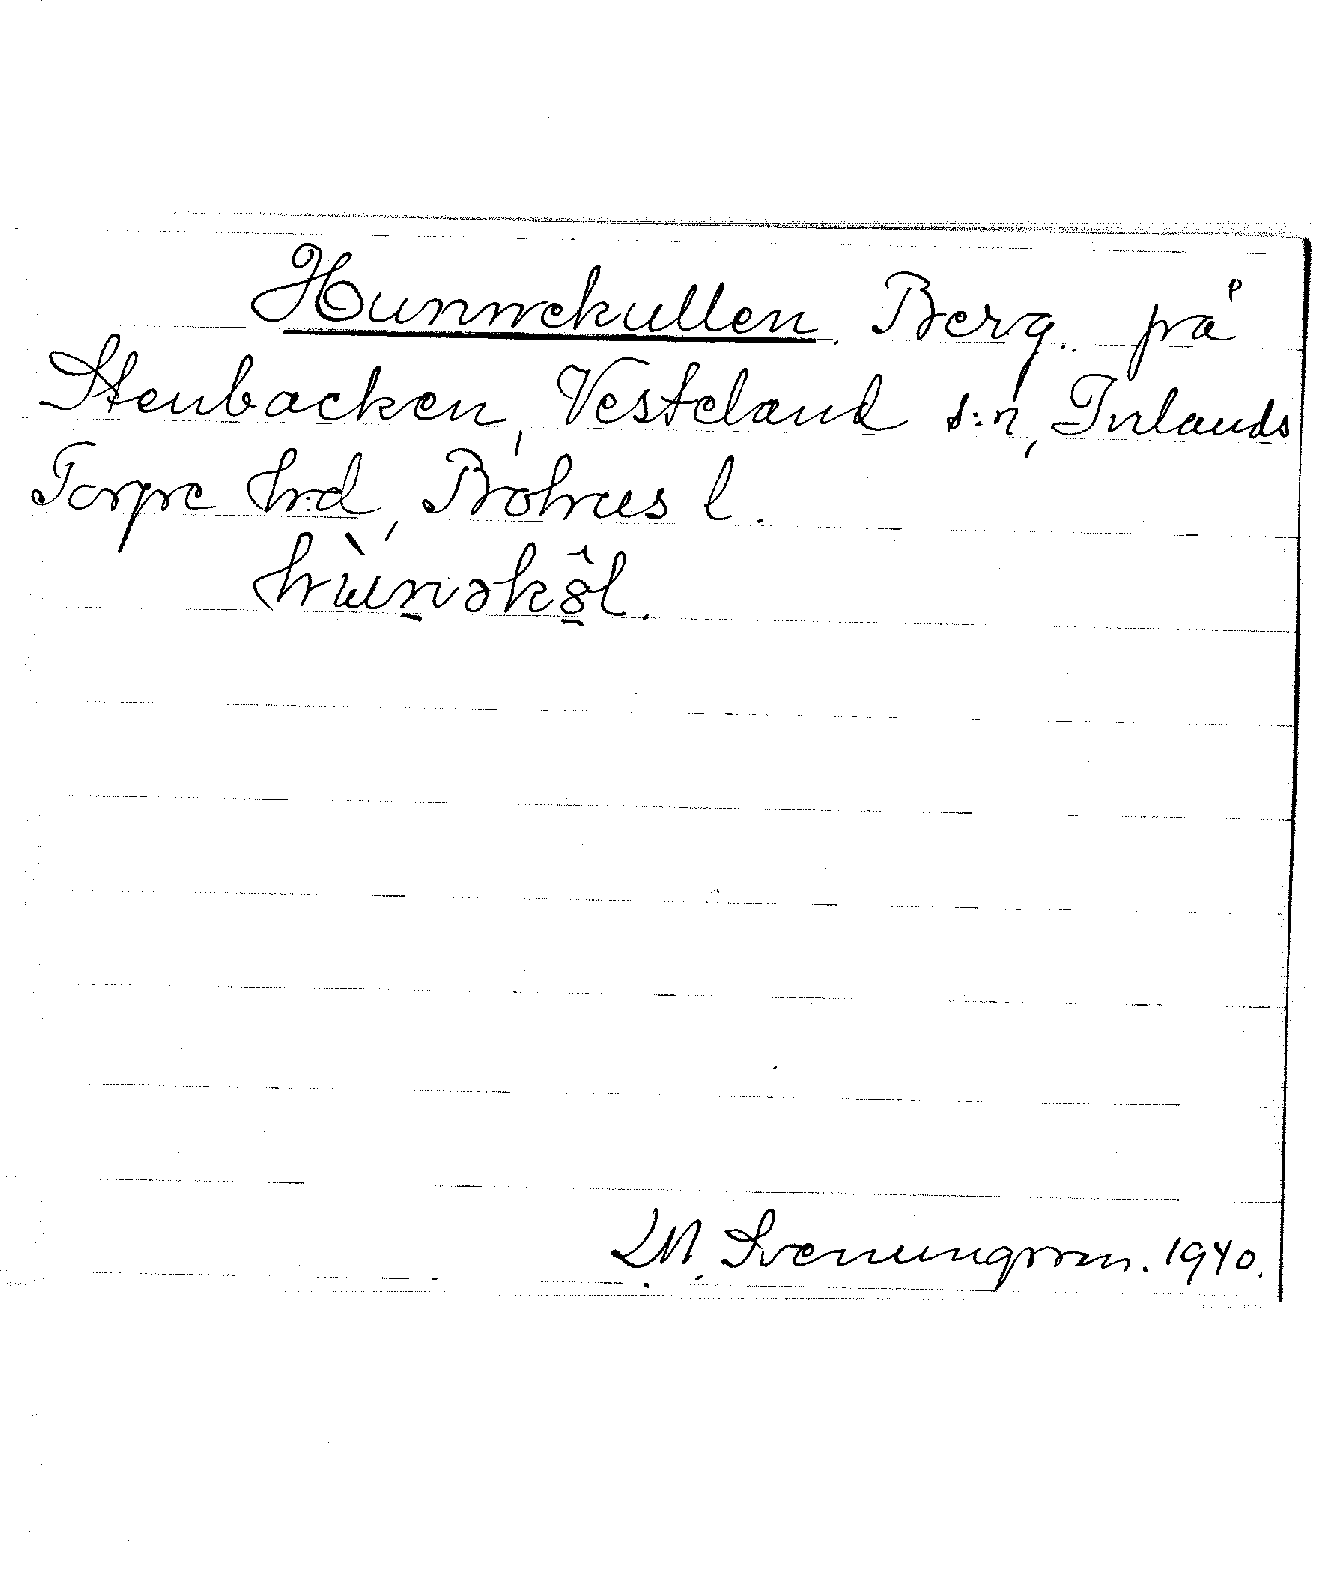 Hunnekullen. Berg. på
Stenbacken, Vesteland s:n, Inlands
Torpe hrd, Bohus l.
hùnəkôl.
LM. Svenungsson. 1940.